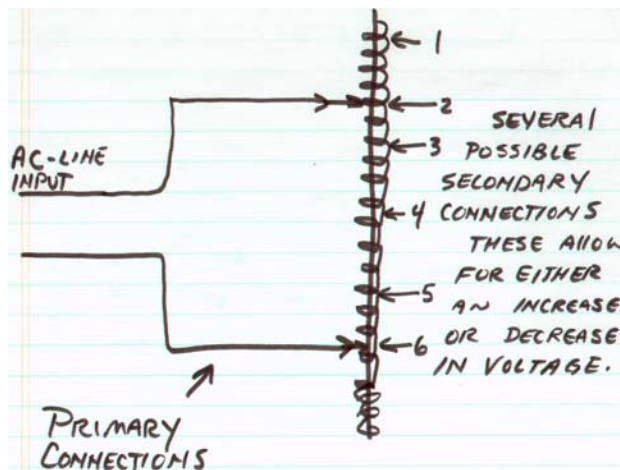 1
2
3
4
5
6
AC-LINE
INPUT
SEVERAL
POSSIBLE
SECONDARY
CONNECTIONS
THESE ALLOW
FOR EITHER
AN INCREASE
OR DECREASE
IN VOLTAGE.
PRIMARY
CONNECTIONS